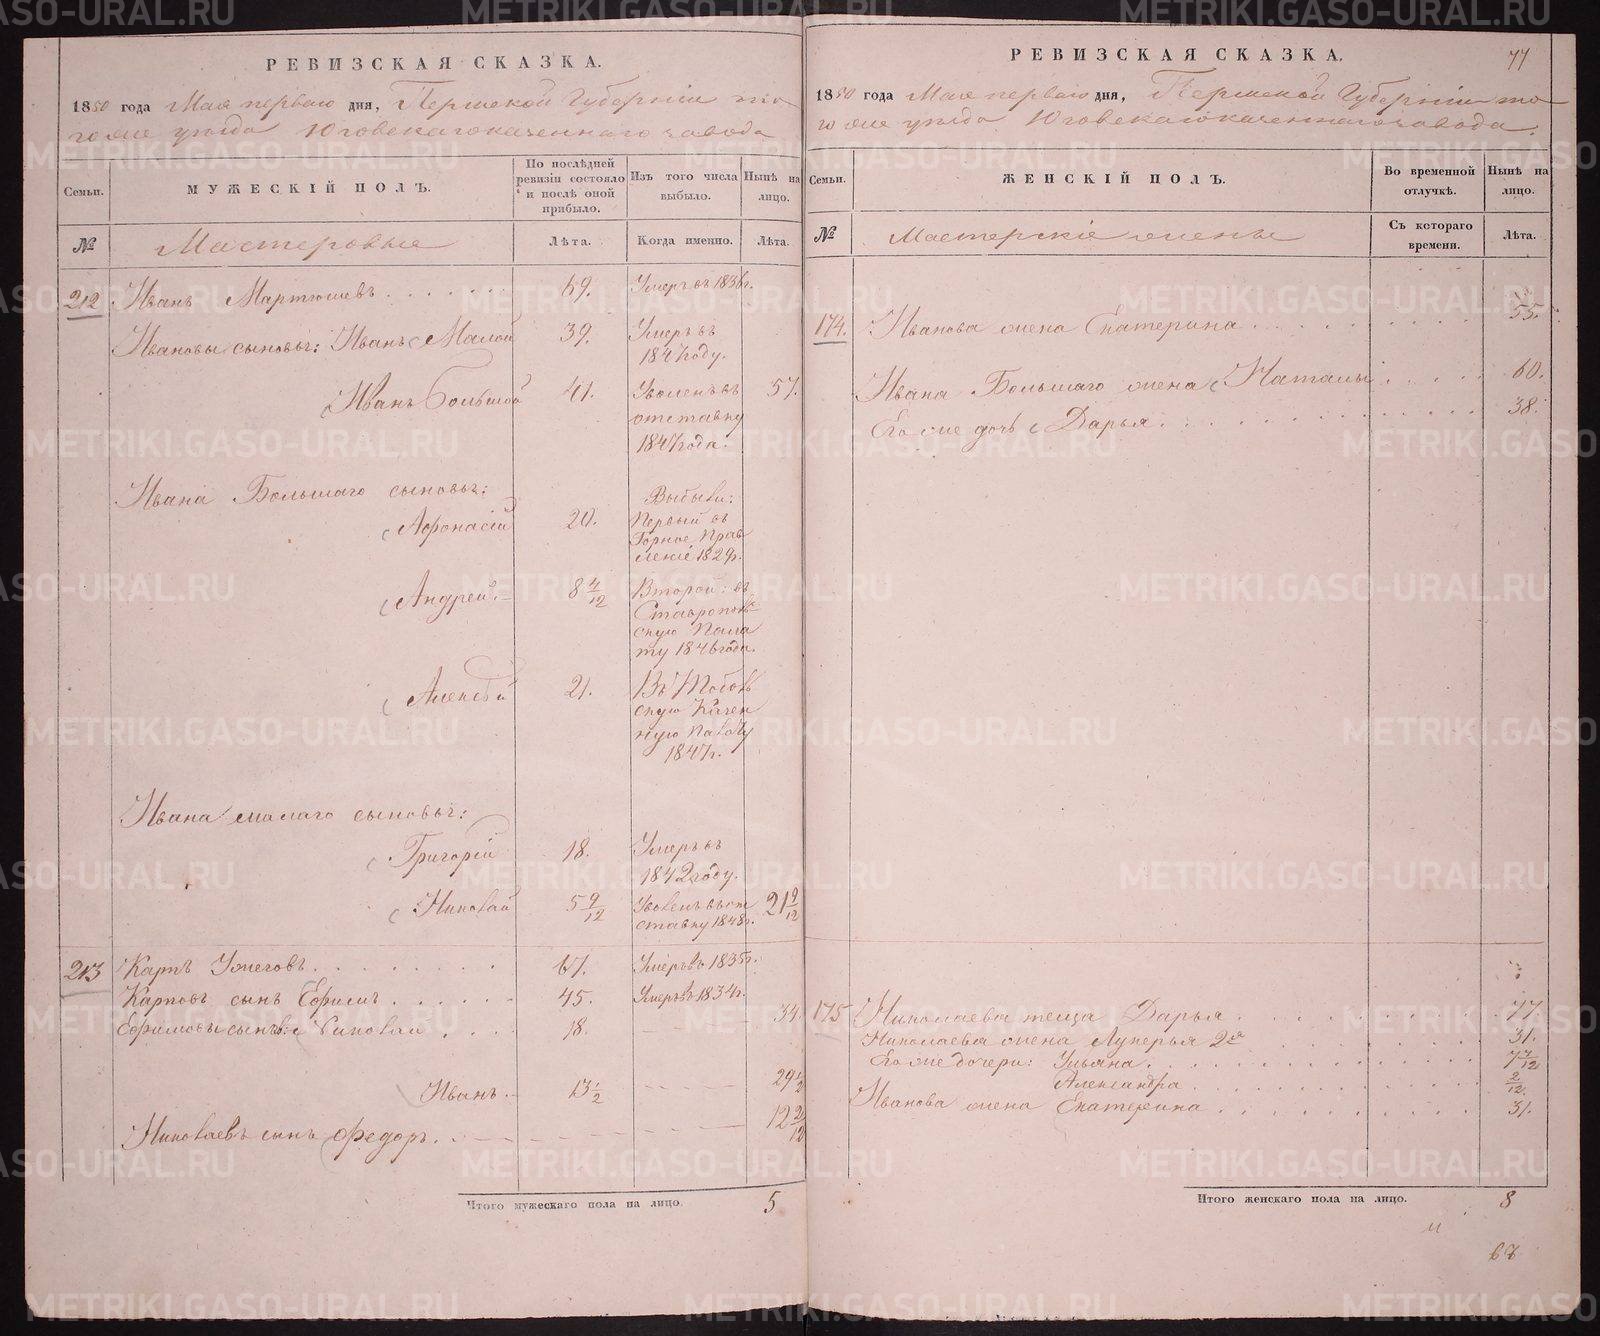 РЕВИЗСКАЯ СКАЗКА.
1850 года Мая перваго дня, Пермской Губерніи то
гоже уѣзда Юговскаго казеннаго завода
Семьи.
МУЖЕСКІЙ ПОЛЪ.
По послѣдней ревизіи состояло и послѣ оной прибыло.
Изъ того числа выбыло.
Нынѣ на лицо.
№
Мастеровые
Лѣта.
Когда именно.
Лѣта.
212 Иванъ Мартюшевъ . . . . . . . 69. Умеръ въ 1836 г.
Ивановы сыновья: Иванъ Малой 39. Умеръ въ 1847 году.
Иванъ Большой 41. Уволенъ въ отставку 1847 года. 57.
Ивана Большаго сыновья:
Афонасій 20. Выбыли: Первый въ Горное Правленіе 1829 г.
Андрей 8 4/12 Второй: въ Ставропольскую Палату 1846 года.
Алексѣй 21. Въ Тобольскую Казенную Палату 1847 г.
Ивана малаго сыновья:
Григорій 18. Умеръ въ 1842 году.
Николай 5 9/12 Уволенъ въ отставку 1848 г. 21 9/12
213 Карпъ Ужеговъ . . . . . . . 67. Умеръ въ 1835 г.
Карповъ сынъ Ефимъ . . . . . 45. Умеръ въ 1834 г.
Ефимовы сынов: Николай . . . . 18. 34.
Иванъ 13 1/2 29 1/2
Николаевъ сынъ Федоръ. 12 2/12
Итого мужескаго пола на лицо. 5
РЕВИЗСКАЯ СКАЗКА. 77
1850 года Мая перваго дня, Пермской Губерніи то
гоже уѣзда Юговскаго казеннаго завода.
Семьи.
ЖЕНСКІЙ ПОЛЪ.
Во временной отлучкѣ.
Нынѣ на лицо.
№
Мастерскіе жены
Съ котораго времени.
Лѣта.
174. Иванова жена Екатерина . . . . . . . . . 55.
Ивана Большаго жена Наталья . . . . . 60.
Его же дочь Дарья . . . . . . . . . . . 38.
175 Николаева теща Дарья . . . . . . . . . . 77.
Николаева жена Лукерья 2я . . . . . . . 31.
Его же дочери: Ульяна . . . . . . . . . . 7 7/12
Александра . . . . . . . . . . 2/12
Иванова жена Екатерина . . . . . . . . . 31.
Итого женскаго пола на лицо. 8
METRIKI.GASO-URAL.RU